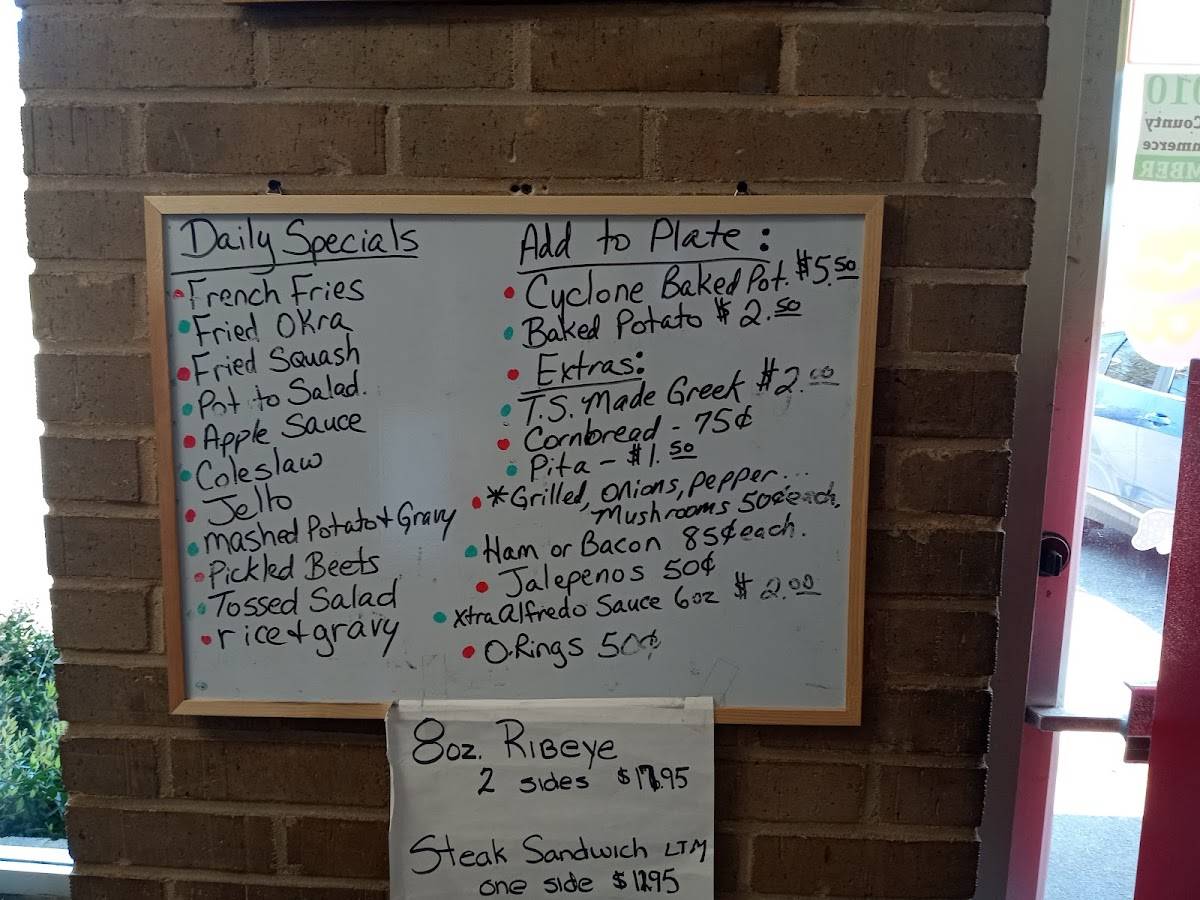 Daily Specials
French Fries
Fried Okra
Fried Squash
Pot to Salad.
Apple Sauce
Coleslaw
Jello
mashed Potato + Gravy
Pickled Beets
Tossed Salad
rice + gravy
Add to Plate:
Cyclone Baked Pot. $5.50
Baked Potato $2.50
Extras:
T.S. Made Greek $2.00
Cornbread - 75¢
Pita - $1.50
*Grilled, onions, pepper...
Mushrooms 50¢ each,
Ham or Bacon 85¢ each.
Jalepenos 50¢
xtra alfredo Sauce 6oz $2.00
O.Rings 50¢
8oz. Ribeye
2 sides
Steak Sandwich LTM
one side $12.95
010
County
MBER